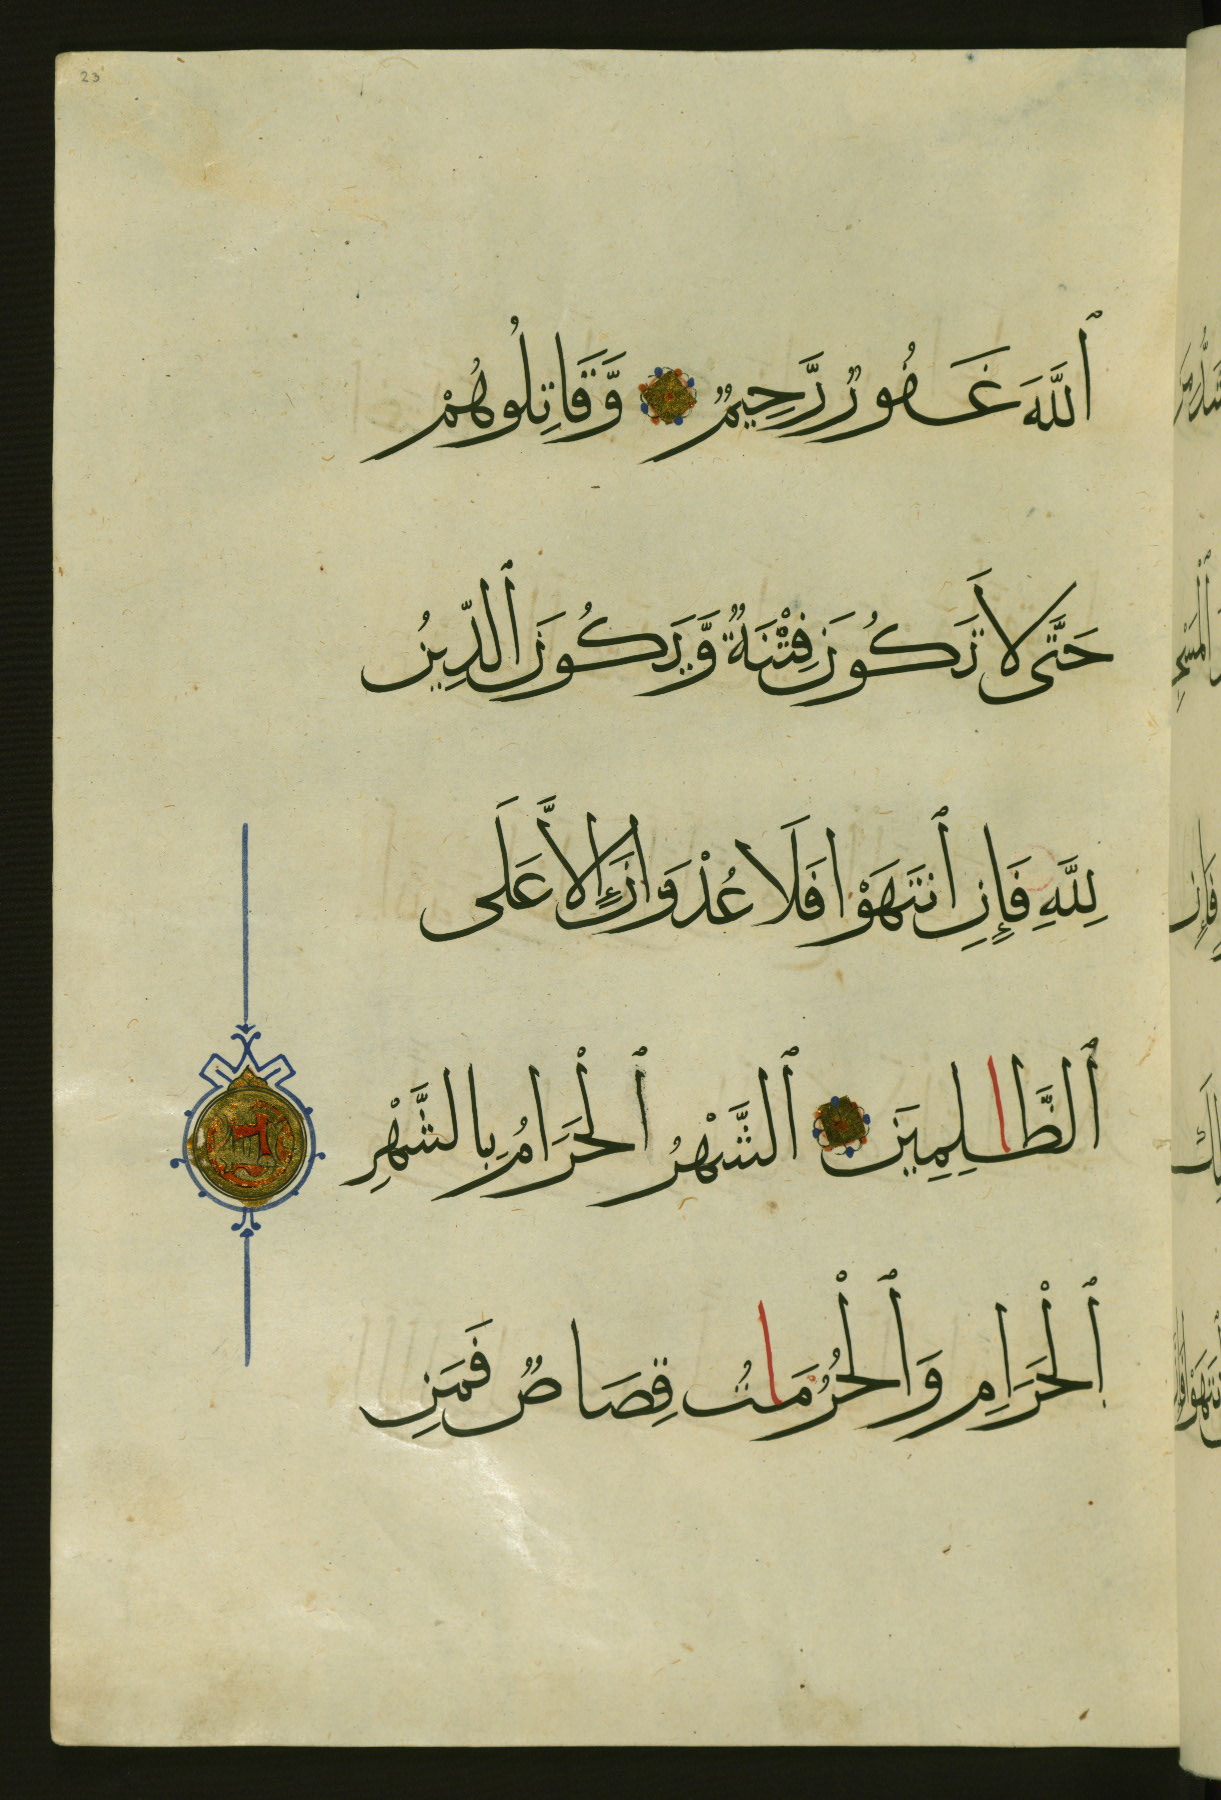 23
ٱللَّهَ غَفُورٌ رَّحِيمٌ وَّقَاتِلُوهُمْ
حَتَّى لَا تَكُونَ فِتْنَةٌ وَّيَكُونَ ٱلدِّينُ
لِلَّهِ فَإِنِ ٱنتَهَوْا فَلَا عُدْوَانَ إِلَّا عَلَى
ٱلظَّالِمِينَ ٱلشَّهْرُ ٱلْحَرَامُ بِالشَّهْرِ
ٱلْحَرَامِ وَٱلْحُرُمَاتُ قِصَاصٌ فَمَنِ